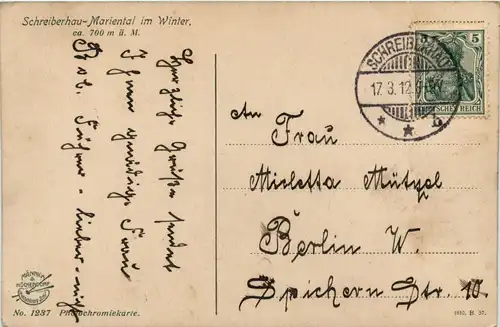 Schreiberhau-Mariental im Winter,
ca. 700 m ü. M.
Herzliche Grüße sendet
Ihnen gnädige Frau
SCHREIBERHAU
17. 3. 12.
* * b
5
DEUTSCHES REICH
An
Frau
Mieletta Mützel
Berlin W.
Spichern Str. 10.
No. 1237 Photochromiekarte.
1910. B. 37.